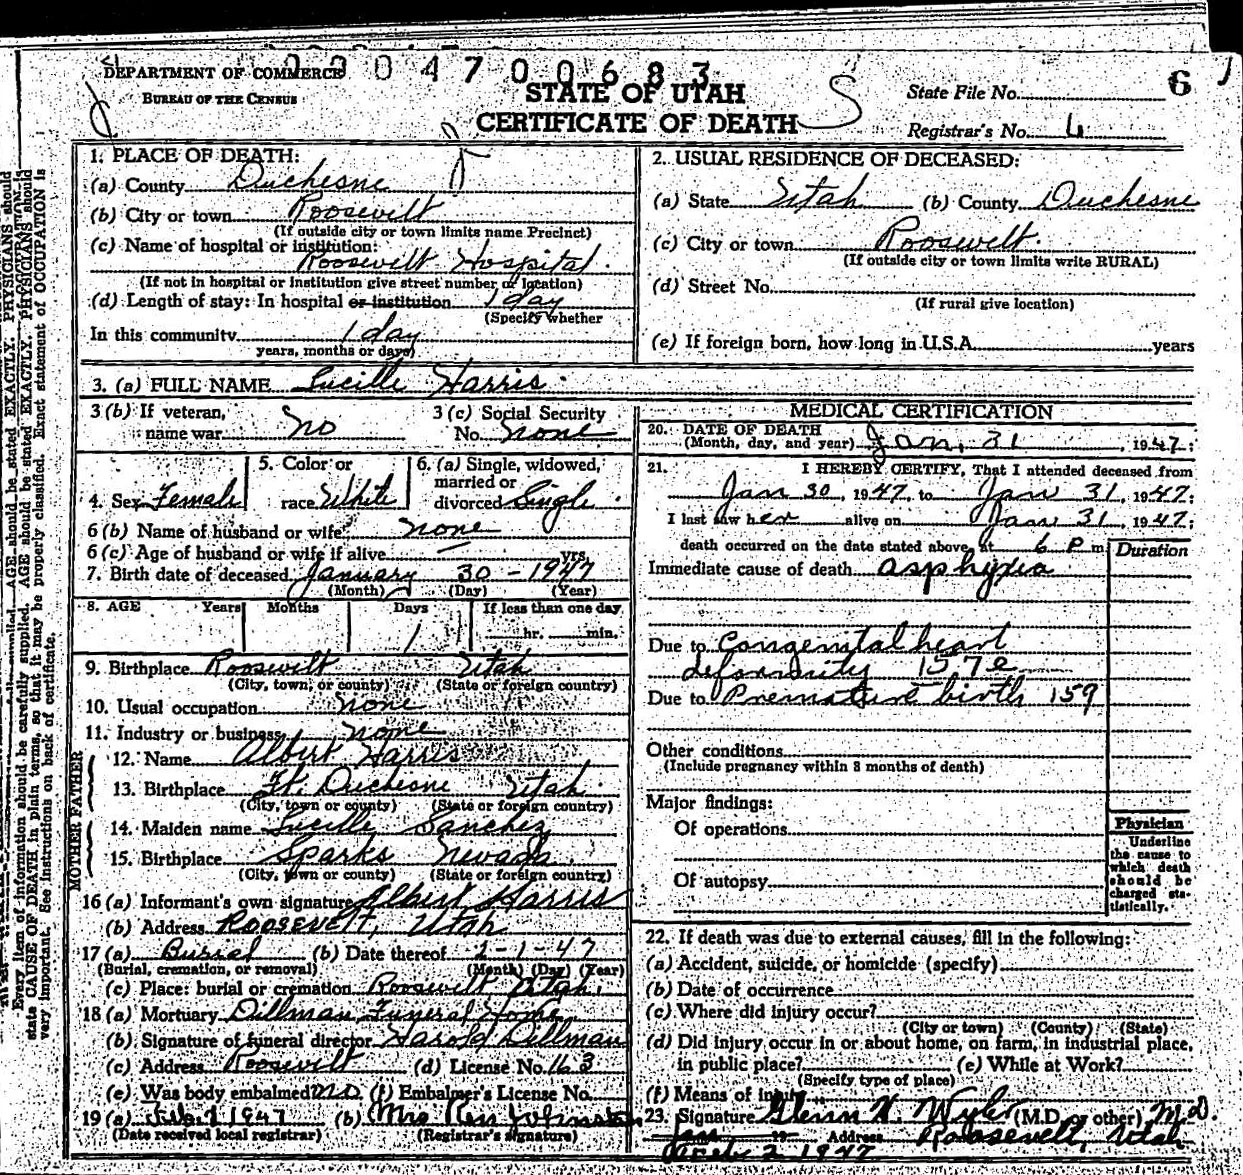 DEPARTMENT OF COMMERCE
BUREAU OF THE CENSUS
004700683
STATE OF UTAH
CERTIFICATE OF DEATH
S
6
State File No.
Registrar's No. 4
1. PLACE OF DEATH:
(a) County Duchesne
(b) City or town Roosevelt
(If outside city or town limits name Precinct)
(c) Name of hospital or institution:
Roosevelt Hospital
(If not in hospital or institution give street number or location)
(d) Length of stay: In hospital or institution 1 day
(Specify whether
In this community 1 day
years, months or days)
2. USUAL RESIDENCE OF DECEASED:
(a) State Utah (b) County Duchesne
(c) City or town Roosevelt.
(If outside city or town limits write RURAL)
(d) Street No.
(If rural give location)
(e) If foreign born, how long in U.S.A. years
3. (a) FULL NAME Lucille Harris
3 (b) If veteran, name war No
3 (c) Social Security No. none
4. Sex Female
5. Color or race White
6. (a) Single, widowed, married or divorced Single
6 (b) Name of husband or wife none
6 (c) Age of husband or wife if alive — yrs.
7. Birth date of deceased January 30 - 1947
(Month) (Day) (Year)
8. AGE Years Months Days If less than one day
1 hr. min.
9. Birthplace Roosevelt Utah
(City, town, or county) (State or foreign country)
10. Usual occupation none
11. Industry or business none
FATHER
12. Name Albert Harris
13. Birthplace Ft. Duchesne Utah
(City, town or county) (State or foreign country)
MOTHER
14. Maiden name Lucille Sanchez
15. Birthplace Sparks Nevada
(City, town or county) (State or foreign country)
16 (a) Informant's own signature Albert Harris
(b) Address Roosevelt, Utah
17 (a) Burial (b) Date thereof 2-1-47
(Burial, cremation, or removal) (Month) (Day) (Year)
(c) Place: burial or cremation Roosevelt Utah.
18 (a) Mortuary Dillman Funeral Home
(b) Signature of funeral director Harold Dillman
(c) Address Roosevelt (d) License No. 163
(e) Was body embalmed no (f) Embalmer's License No.
19 (a) 1947 (b) Mrs Johnston
(Date received local registrar) (Registrar's signature)
MEDICAL CERTIFICATION
20. DATE OF DEATH
(Month, day, and year) Jan. 31, 1947;
21. I HEREBY CERTIFY, That I attended deceased from
Jan 30, 1947, to Jan 31, 1947;
I last saw her alive on Jan 31, 1947;
death occurred on the date stated above, at 6 P m.
Duration
Immediate cause of death asphyxia
Due to Congenital heart
deformity 157e
Due to Premature birth 159
Other conditions
(Include pregnancy within 3 months of death)
Major findings:
Of operations
Of autopsy
Physician
Underline
the cause to
which death
should be
charged sta-
tistically.
22. If death was due to external causes, fill in the following:
(a) Accident, suicide, or homicide (specify)
(b) Date of occurrence
(c) Where did injury occur?
(City or town) (County) (State)
(d) Did injury occur in or about home, on farm, in industrial place,
in public place? (e) While at Work?
(Specify type of place)
(f) Means of injury
23. Signature Glenn (M.D. or other) M.D.
Address Roosevelt, Utah
2 1947
Every item of information should be carefully supplied. AGE should be stated EXACTLY. PHYSICIANS should
state CAUSE OF DEATH in plain terms, so that it may be properly classified. Exact statement of OCCUPATION is
very important. See instructions on back of certificate.